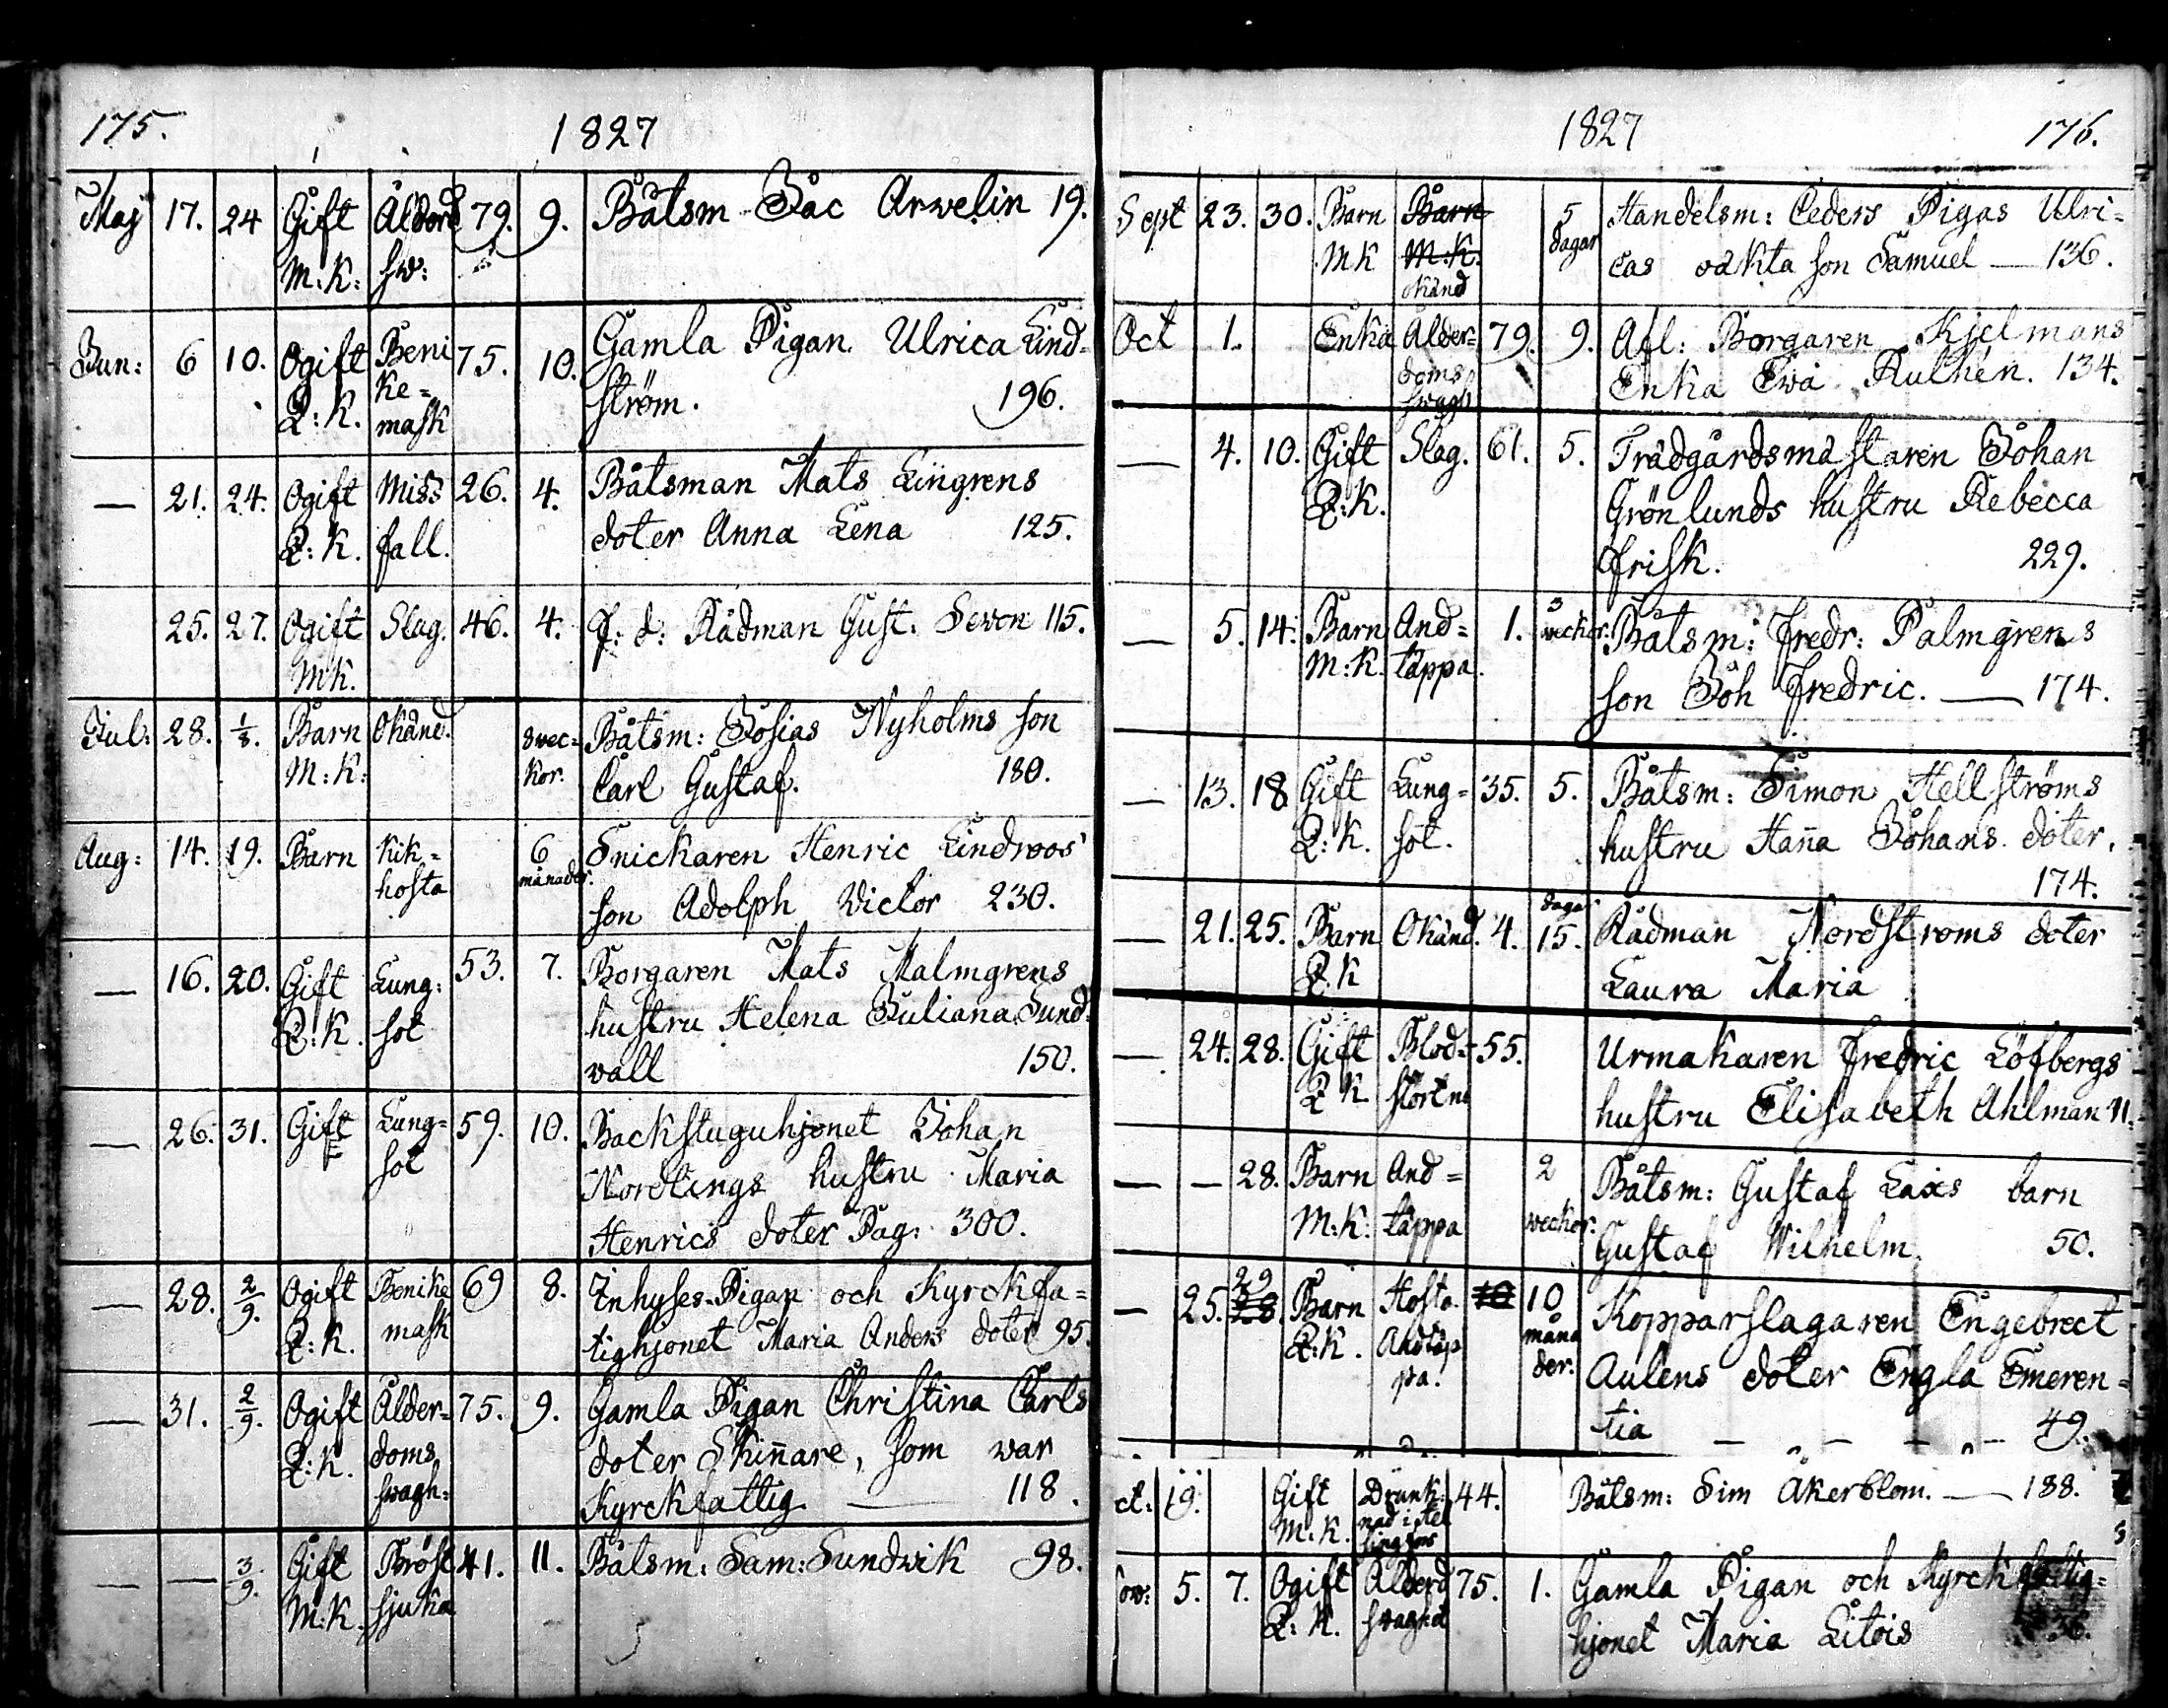 175. 1827
Maj 17. 24 Gift Ålderd 79. 9. Båtsm Isac Arwelin 19.
M:K: sw:
Jun: 6 10. Ogift Beni 75. 10. Gamla Pigan Ulrica Lind=
Q:K. ke= ström. 196.
mask
— 21. 24. Ogift Miss 26. 4. Båtsman Mats Liingrens
Q:K. fall. doter Anna Lena 125.
25. 27. Ogift Slag. 46. 4. f: d: Rådman Gust. Sevon 115.
MK.
Jul: 28. 1/8. Barn Okänd. 3 wec= Båtsm: Josias Nyholms son
M:K: kor. Carl Gustaf. 180.
Aug: 14. 19. Barn Kik= 6 Snickaren Henric Lindroos'
hosta månader. son Adolph Victor 230.
— 16. 20. Gift Lung: 53. 7. Borgaren Mats Malmgrens
Q:K. sot hustru Helena Juliana Sund=
wall 150.
— 26. 31. Gift Lung= 59. 10. Backstuguhjonet Johan
sot Nordlings hustru Maria
Henrics doter Pag: 300.
— 28. 2/9. Ogift Benike 69 8. Inhyses-Pigan och Kyrckfa=
Q:K. mask tighjonet Maria Anders doter 95.
— 31. 2/9. Ogift Ålder= 75. 9. Gamla Pigan Christina Carls
Q:K. doms doter Skin̄are, som war
swagh: Kyrckfattig — 118.
— — 3/9. Gift Bröst 41. 11. Båtsm: Sam: Sundwik 98.
M:K. sjuka
1827 176.
Sept 23. 30. Barn Barn 5 Handelsm: Ceders Pigas Ulri=
MK M:K. dagar cas oäkta son Samuel — 136.
okänd
Oct 1. Enka Ålder= 79. 9. Afl: Borgaren Kjelmans
doms Enka Ewa Ruthén. 134.
swagh
— 4. 10. Gift Slag. 61. 5. Trädgårdsmästaren Johan
Q:K. Grönlunds hustru Rebecca
frisk. 229.
— 5. 14. Barn And= 1. 3 weckor. Båtsm: Fredr: Palmgrens
M:K. täppa. son Joh Fredric. — 174.
— 13. 18 Gift Lung= 35. 5. Båtsm: Simon Hellströms
Q:K. sot. hustru Han̄a Johans doter.
174.
— 21. 25. Barn Okänd. 4. dagar 15. Rådman Nordstroms doter
Q.K Laura Maria
— 24. 28. Gift Blod= 55. Urmakaren Fredric Löfbergs
Q K störtn. hustru Elisabeth Ahlman 11.
— — 28. Barn And= 2 Båtsm: Gustaf Laxs barn
M:K. täppa weckor. Gustaf Wilhelm. 50.
— 25. 29 28. Barn Hosta 10 10 Kopparslagaren Engebrect
Q:K. Andtäp måna Aulens doter Engla Emeren=
pa. der. tia — — — — 49.
ct: 19. Gift Drunk= 44. Båtsm: Sim Åkerblom. — 188.
M:K. nad i Hel
singfors
ov: 5. 7. Ogift Ålderd 75. 1. Gamla Pigan och Kyrckfattig=
Q:K. swaghet hjonet Maria Litois